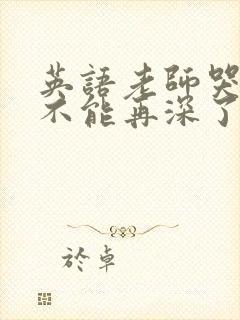 英語老師哭
不能再深了
於卓